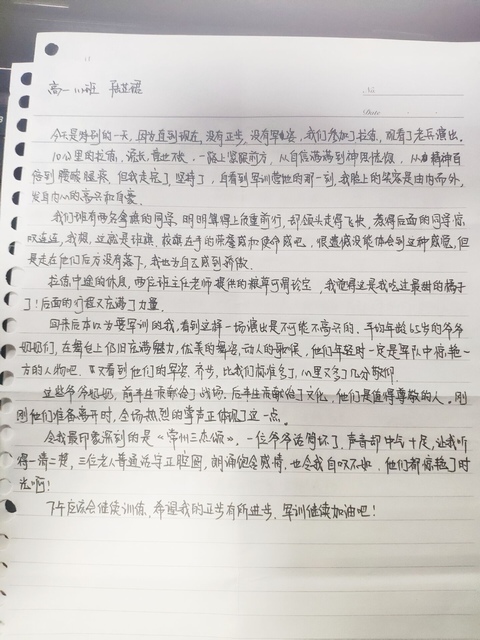 高一11班
No
Date
今天是特别的一天，因为直到现在，没有正步，没有军姿，我们参加了拉练，观看了老兵演出。
10公里的拉练，漫长，曾也不长，一路上紧跟前方，从自信满满到神照恍惚，从精神百
倍到腰酸腿疼，但我走完了，坚持了，自看到军训营地的那一刻，我脸上的笑容是由内而外，
发自内心的高兴和自豪。
我们班有两名拿旗的同学，明明算得上负重前行，却领头走得飞快，惹得后面的同学惊
叹连连，我想，这就是班旗，校旗在手的荣誉感和使命感吧，很遗憾没能体会到这种感觉，但
是走在他们后方没有落下，我也为自己感到骄傲。
拉练中途的休息，两位班主任老师提供的粮草可谓论宝，我觉得这是我吃过最甜的橘子
了！后面的行程又充满了力量。
回来后本以为要军训的我，看到这样一场演出是不可能不高兴的，平均年龄65岁的爷爷
奶奶们，在舞台上仍旧充满魅力，优美的舞姿，动人的歌喉，他们年轻时一定是军队中惊艳一
方的人物吧，又看到他们的军姿、齐步，比我们标准多了，心里又多了几分敬仰。
这些爷爷奶奶，前半生贡献给了战场，后半生贡献给了文化，他们是值得尊敬的人。刚
刚他们准备离开时，全场热烈的掌声正体现了这一点。
令我最印象深刻的是《常州三杰颂》，一位爷爷话筒坏了，声音却中气十足，让我听
得一清二楚，三位老人普通话字正腔圆，朗诵饱含感情，也令我自叹不如，他们都惊艳了时
光啊！
下午应该会继续训练，希望我的正步有所进步，军训继续加油吧！